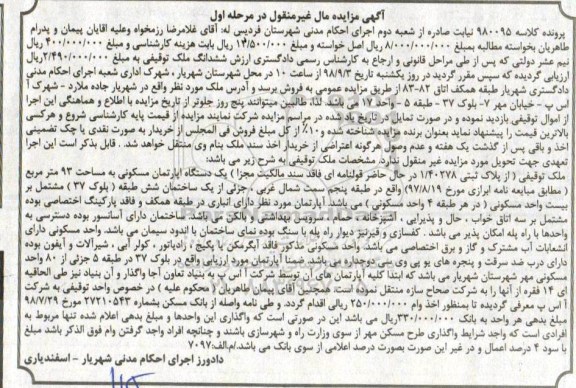 آگهی مزایده مال غیرمنقول در مرحله اول
پرونده کلاسه ۹۸۰۰۹۵ نیابت صادره از شعبه دوم اجرای احکام مدنی شهرستان فردیس له: آقای غلامرضا رزمخواه وعلیه آقایان پیمان و پدرام
طاهریان بخواسته مطالبه بمبلغ ۸/۰۰۰/۰۰۰/۰۰۰ ریال اصل خواسته و مبلغ ۱۴/۵۰۰/۰۰۰ ریال بابت هزینه کارشناسی و مبلغ ۴۰۰/۰۰۰/۰۰۰ ریال
نیم عشر دولتی که پس از طی مراحل قانونی و ارجاع به کارشناس رسمی دادگستری ارزش ششدانگ ملک توقیفی به مبلغ ۲/۴۹۰/۰۰۰/۰۰۰ ریال
ارزیابی گردیده که سپس مقرر گردید در روز یکشنبه تاریخ ۹۸/۹/۳ از ساعت ۱۰ در محل شهرستان شهریار، شهرک اداری شعبه اجرای احکام مدنی
دادگستری شهریار طبقه همکف اتاق ۸۲-۸۳ از طریق مزایده عمومی به فروش برسد و آدرس ملک مورد نظر واقع در شهریار جاده ملارد - شهرک آ
اس پ - خیابان مهر ۷- بلوک ۳۷ - طبقه ۵ - واحد ۱۷ می باشد. لذا، طالبین میتوانند پنج روز جلوتر از تاریخ مزایده با اطلاع و هماهنگی این اجرا
از اموال توقیفی بازدید نموده و در صورت تمایل در تاریخ یاد شده در مراسم مزایده شرکت نمایند مزایده از قیمت پایه کارشناسی شروع و هرکسی
بالاترین قیمت را پیشنهاد نماید بعنوان برنده مزایده شناخته شده و ۱۰٪ از کل مبلغ فروش فی المجلس از خریدار به صورت نقدی یا چک تضمینی
اخذ و باقی پس از گذشت یک هفته و عدم وصول هرگونه اعتراضی از خریدار اخذ سند ملک بنام وی منتقل خواهد شد. قابل بذکر است این اجرا
تعهدی جهت تحویل مورد مزایده غیر منقول ندارد. مشخصات ملک توقیفی به شرح زیر می باشد:
ملک توقیفی (از پلاک ثبتی ۱/۴۰۲۷۸ در حال حاضر قولنامه ای فاقد سند مالکیت مجزا) یک دستگاه آپارتمان مسکونی به مساحت ۹۳ متر مربع
(مطابق مبایعه نامه ابرازی مورخ ۹۷/۸/۱۹) واقع در طبقه پنجم سمت شمال غربی، جزئی از یک ساختمان شش طبقه (بلوک ۳۷) مشتمل بر
بیست واحد مسکونی (در هر طبقه ۴ واحد مسکونی) می باشد. آپارتمان مورد نظر دارای انباری در طبقه همکف و فاقد پارکینگ اختصاصی بوده
مشتمل بر سه اتاق خواب، حال و پذیرایی، آشپزخانه، حمام، سرویس بهداشتی و بالکن می باشد. ساختمان دارای آسانسور بوده دسترسی به
واحدها با راه پله امکان پذیر می باشد. کفسازی و قیرنیز دیوار راه پله با سنگ بوده نمای ساختمان با اندود سیمان می باشد. واحد مسکونی دارای
انشعابات آب مشترک و گاز و برق اختصاصی می باشد. واحد مسکونی مذکور فاقد آبگرمکن با پکیج، رادیاتور، کولر آبی، شیرآلات و آیفون بوده
دارای درب ضد سرقت و پنجره های یو پی وی سی دوجداره می باشد. ضمنا آپارتمان مورد ارزیابی واقع در بلوک ۳۷ در طبقه ۵ جزئی از ۸۰ واحد
مسکونی مهر شهرستان شهریار می باشد که ابتدا کلیه آپارتمان های آن توسط شرکت آ اس پ به بنیاد تعاون آجا واگذار و آن بنیاد نیز طی الحاقیه
ای ۱۴ فقره از آنها را به شرکت صحاح سازه منتقل نموده است. همچنین آقای پیمان طاهریان (محکوم علیه) در خصوص واحد توقیفی به شرکت
آ اس پ معرفی گردیده تا بمنظور اخذ وام ۲۵۰/۰۰۰/۰۰۰ ریالی اقدام گردد. و طی نامه واصله از بانک مسکن بشماره ۲۷۲۱۰۵۴۳ مورخ ۹۸/۷/۲۹
مبلغ بدهی هر واحد به بانک ۳۳۰/۰۰۰/۰۰۰ ریال می باشد این در صورتی است که واگذاری این واحدها و مبلغ بدهی اعلام شده تنها مربوط به
افرادی است که واجد شرایط واگذاری طرح مسکن مهر از سوی وزارت راه و شهرسازی باشند و چنانچه افراد واجد گرفتن وام فوق الذکر باشد مبلغ
با سود ۴ درصد اعمال و در غیر این صورت بصورت درصد اعلامی از سوی بانک می باشد./م.الف:۷۰۹۷
دادورز اجرای احکام مدنی شهریار - اسفندیاری